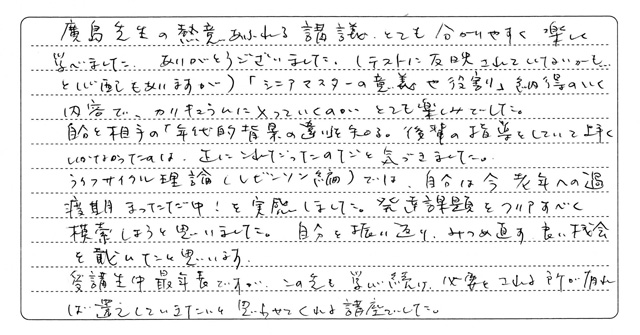 廣島先生の熱意あふれる講議、とても分かりやすく楽しく
学べました。ありがとうございました。(テストに反映されていないかも
と心配もありますが)「シニアマスターの意義や役割」納得のいく
内容で、カリキュラムに入っていくのがとても楽しみでした。
自分と相手の「年代的背景の違いを知る。後輩の指導をしていて上手く
いかなかったのは、正にこれだったのだと気づきました。
ライフサイクル理論(レビンソン編)では、自分は今老年への過
渡期まっただ中!を実感しました。発達課題をクリアすべく
模索しようと思いました。自分を振い返り、みつめ直す良い機会
を戴いたと思います。
受講生中最年長ですが、この先も学び続け、必要とされる所が有れ
ば還元していきたいと思わせてくれる講座でした。